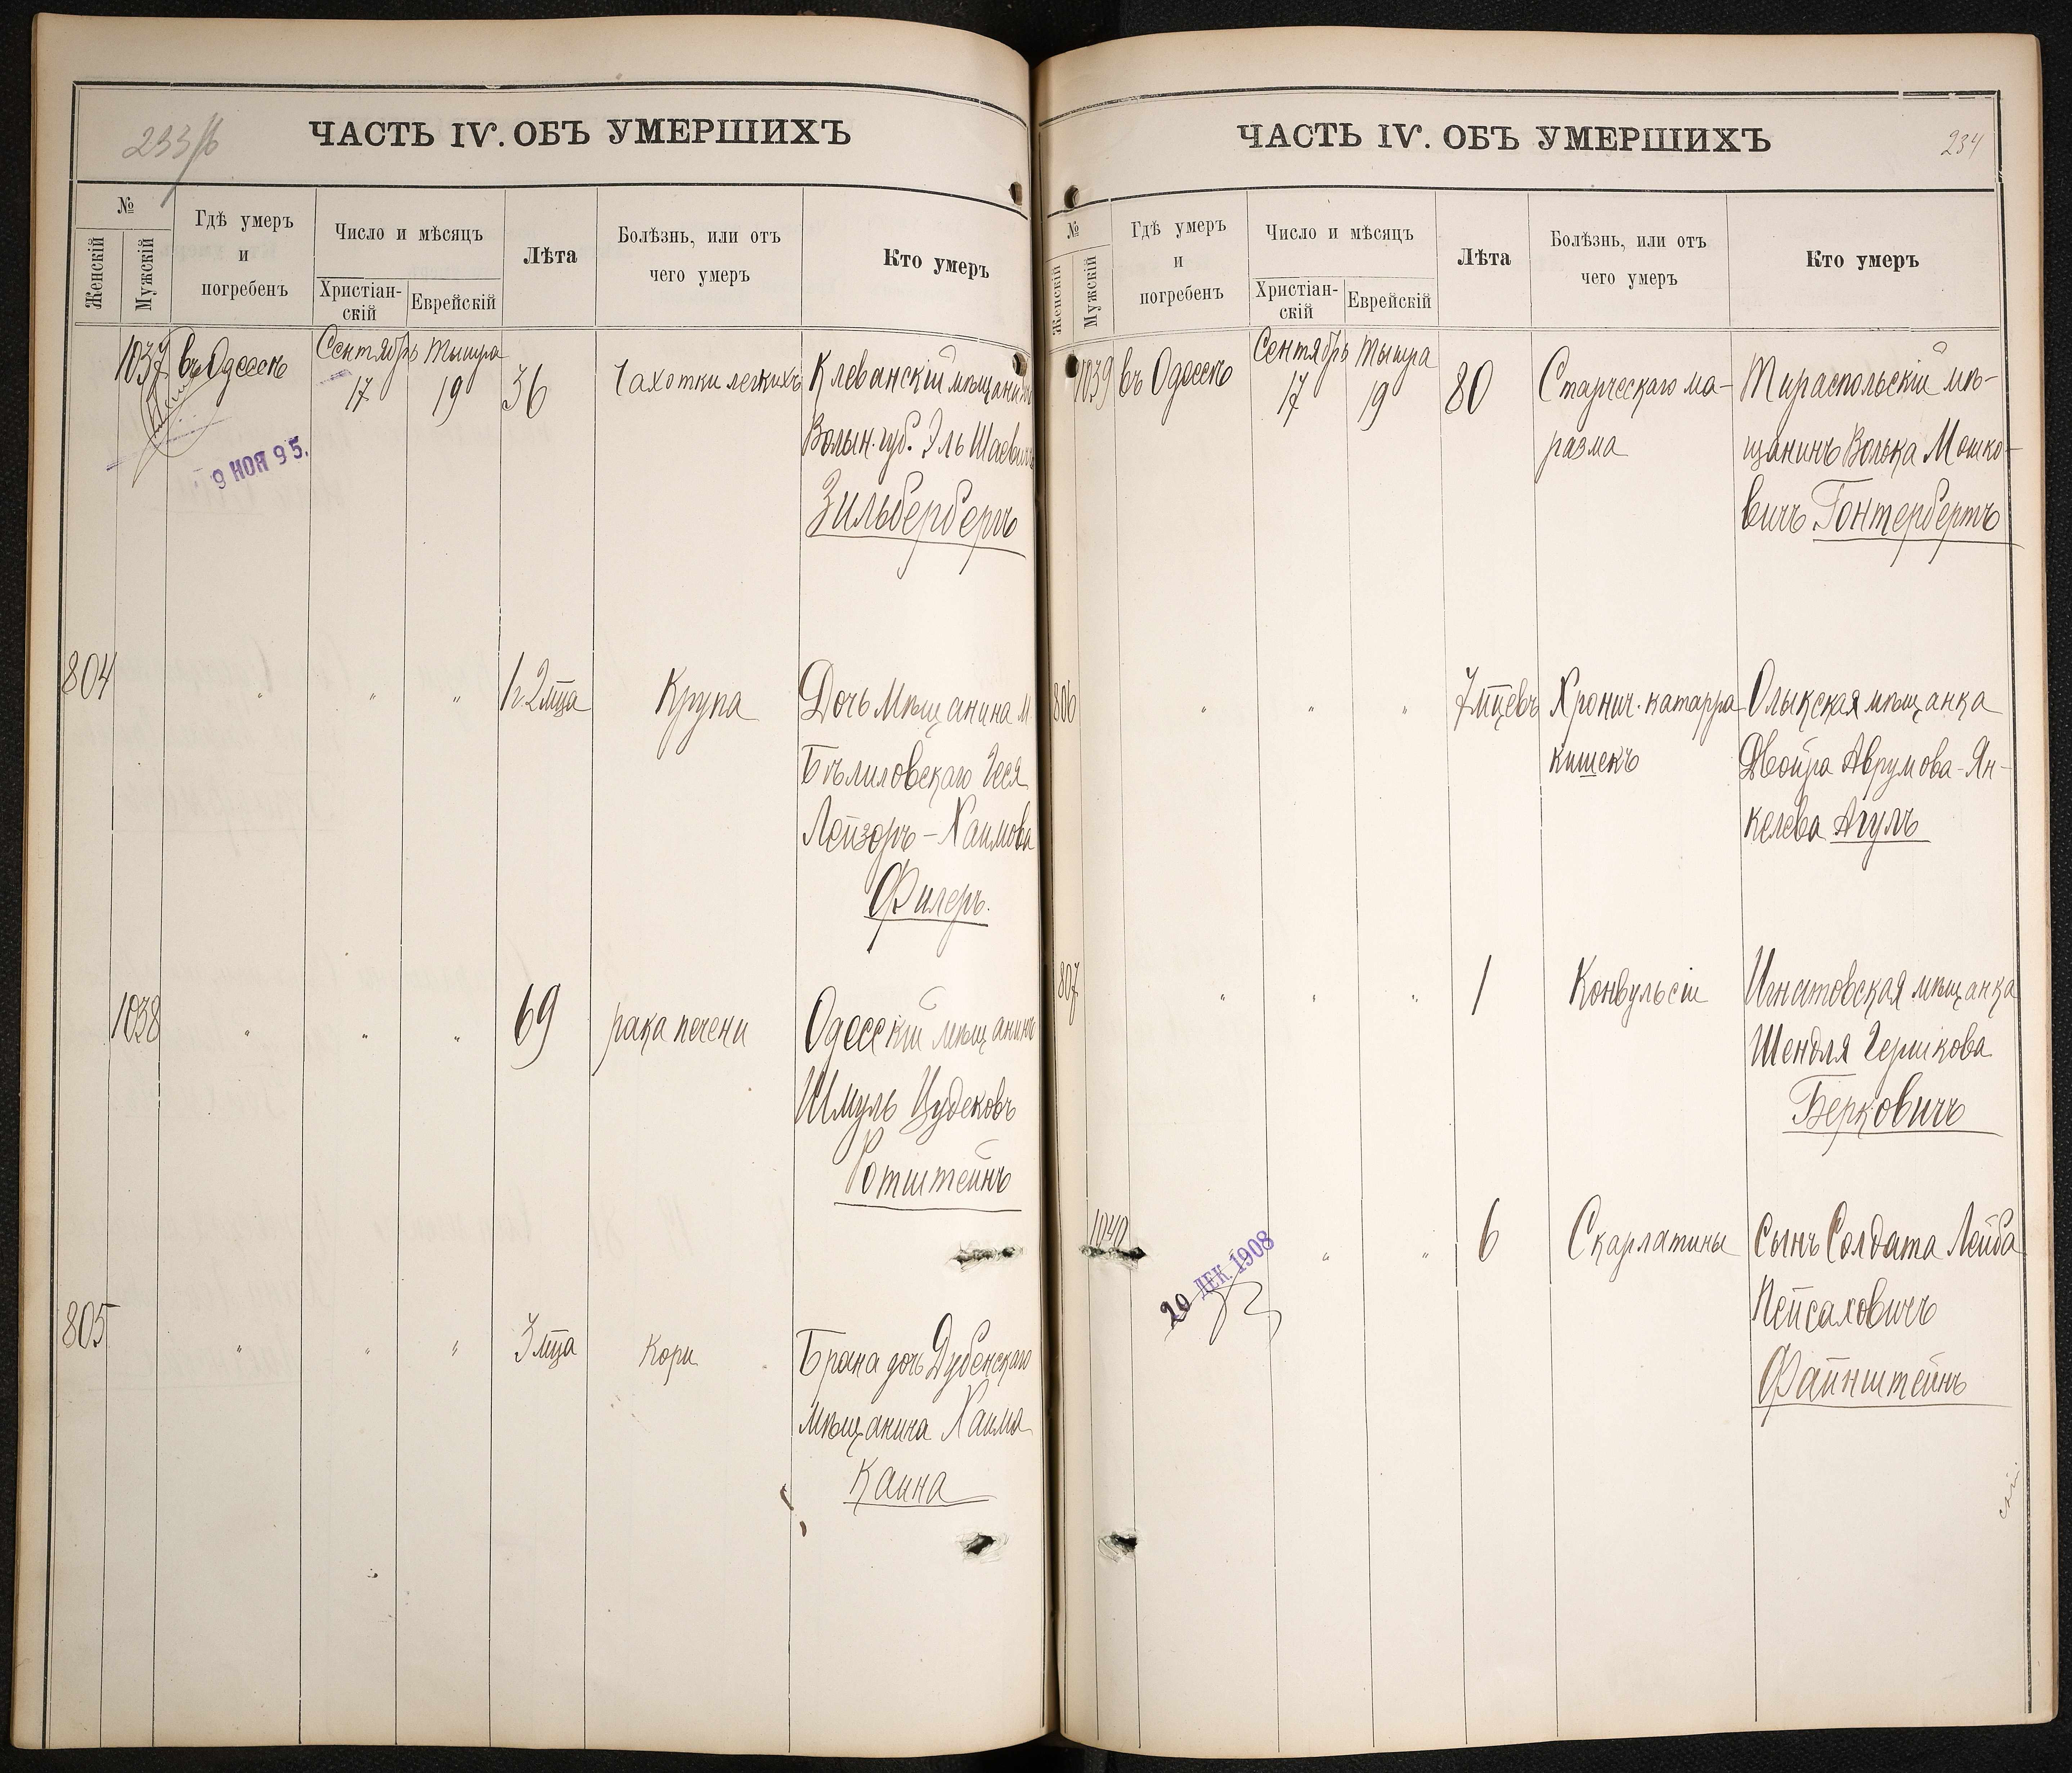 233 об
ЧАСТЬ IV. ОБЪ УМЕРШИХЪ
№
Женскій
Мужскій
Гдѣ умеръ
и
погребенъ
Число и мѣсяцъ
Христіан-
скій
Еврейскій
Лѣта
Болѣзнь, или отъ
чего умеръ
Кто умеръ
1037 въ Одессѣ Сентябрь 17 Тышра 19 36 Чахотки легкихъ Клеванскій мѣщанинъ
Волын. губ. Эль Шаевичъ
Зильбербергъ
9 НОЯ 95.
804 " " " 1 г. 2 мца Крупа Дочь мѣщанина м.
Бѣлиловскаго Геся
Лейзоръ-Хаимова
Филеръ.
1038 " " " 69 рака печени Одесскій мѣщанинъ
Шмуль Цудековъ
Ротштейнъ
805 " " " 3 мца Кори Брана дочь Дубенскаго
мѣщанина Хаима
Каина
234
ЧАСТЬ IV. ОБЪ УМЕРШИХЪ
№
Женскій
Мужскій
Гдѣ умеръ
и
погребенъ
Число и мѣсяцъ
Христіан-
скій
Еврейскій
Лѣта
Болѣзнь, или отъ
чего умеръ
Кто умеръ
1039 въ Одессѣ Сентябрь 17 Тышра 19 80 Старческаго ма- Тираспольскій мѣ-
разма щанинъ Волька Мошко-
вичъ Гонтербертъ
806 " " " 7 мцевъ Хронич. катарра Олыкская мѣщанка
кишекъ Двойра Аврумова-Ян-
келева Агулъ
807 " " " 1 Конвульсіи Игнатовская мѣщанка
Шендля Гершкова
Берковичъ
1040 " " 6 Скарлатины Сынъ Солдата Лейба
Пейсаховичъ
Файнштейнъ
20 ДЕК. 1908